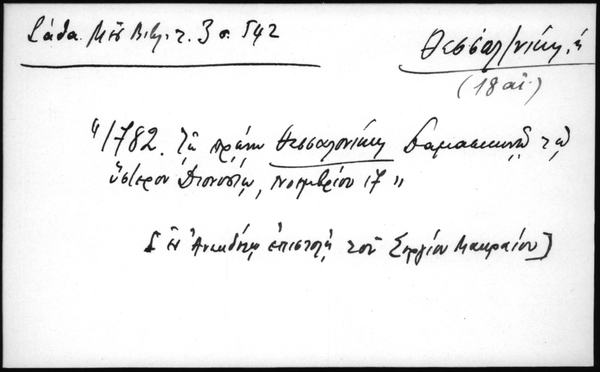 Σάθα Μεσ. Βιβλ. τ. 3 σ. 542
Θεσσαλ/νίκη, ἡ
(18 αἰ.)
"1782. Τῷ πρώην Θεσσαλονίκης Δαμασκηνῷ τῷ
ὕστερον Διονυσίῳ, Νοεμβρίου 17"
[ Ἐν Ἀνεκδότῳ ἐπιστολῇ τοῦ Σεργίου Μακραίου]